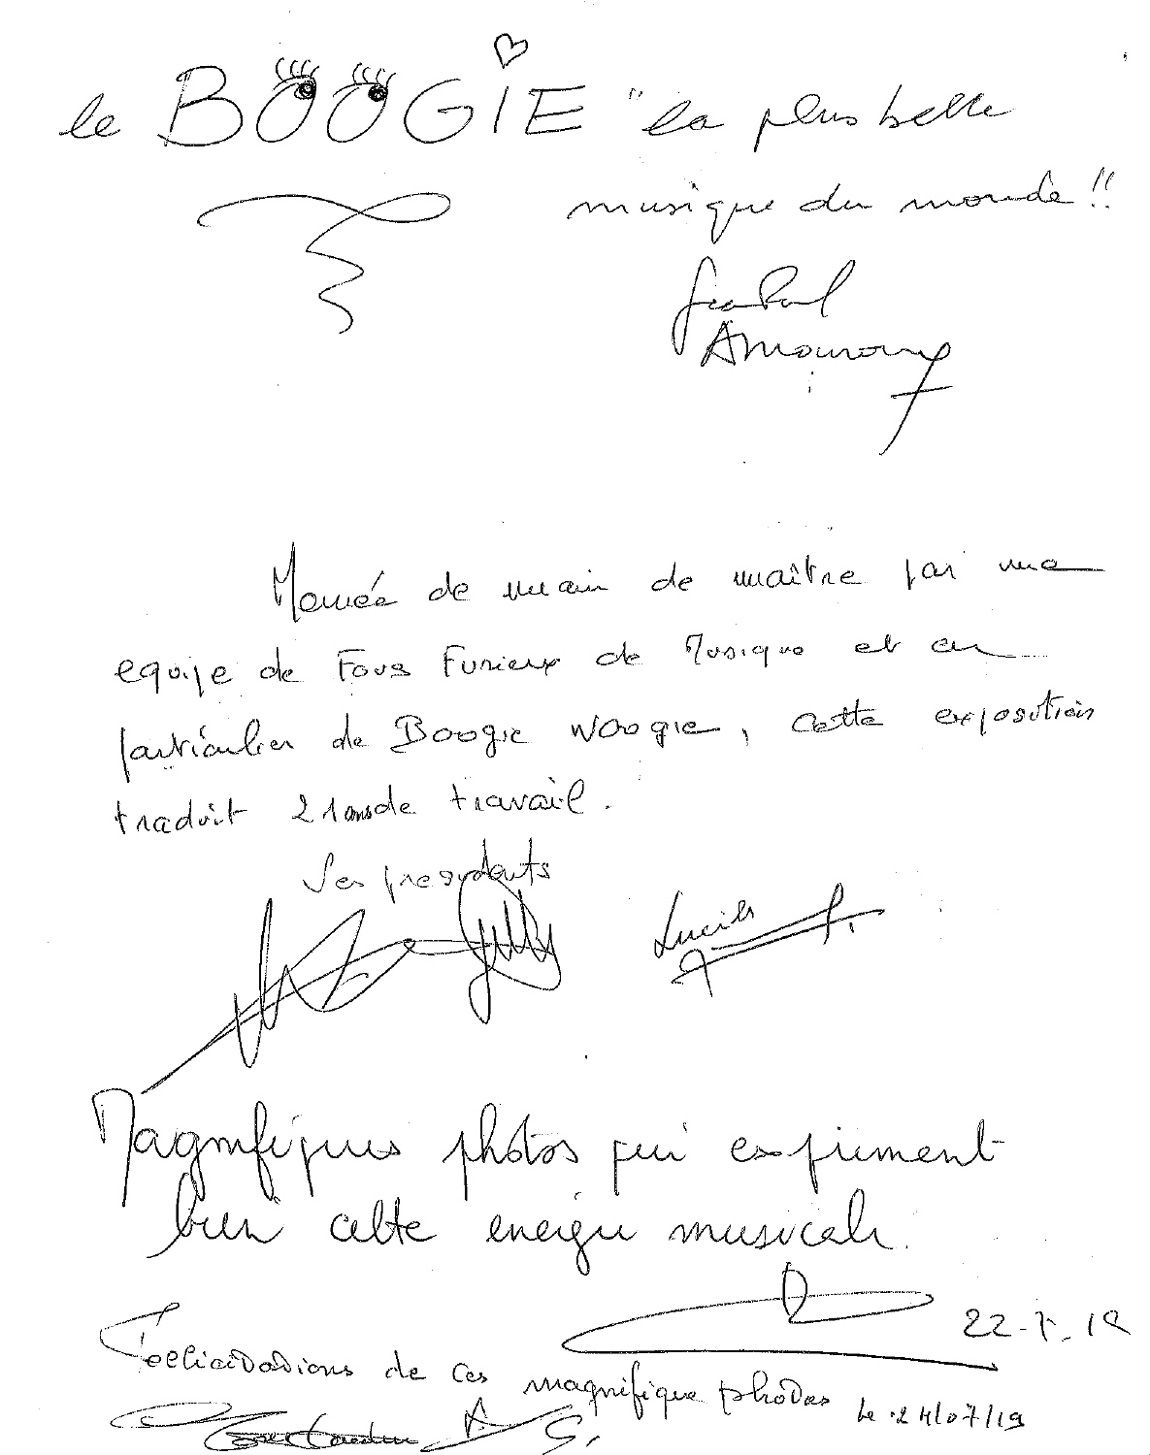 le BOOGIE "la plus belle
musique du monde !!
Jean Paul
Amouroux
Menée de main de maître par une
equipe de Fous Furieux de Musique et en
particulier de Boogie Woogie, cette exposition
traduit 21 ans de travail.
Ses presidents
Lucile
Magnifiques photos qui expriment
bien cette energie musicale.
22-7-19
Fellicidadions de ces magnifique phodos le 24/07/19